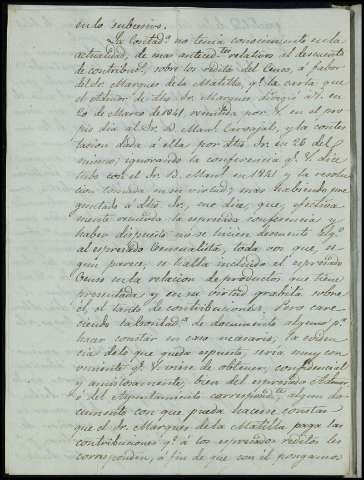 en lo subcesivo.
La Contad.ª no tenia conocimiento en la
actualidad, de mas anteced.tes relativos al descuento
de contribu.s sobre los reditos del Censo, á favor
del Sr. Marques de la Matilla, q.e la carta que
el Admor de dho Sr. Marques dirigió á V. en
20 de Marzo de 1841 remitida por V. en el pro
pio dia al Sr. D. Man.l Carvajal, y la contes
tacion dada á ella por dho Sr. en 26 del
mismo; ignorando la conferencia q.e V. dice
tubo con el Sr. D. Man.l en 1841 y la resolu
cion tomada en su virtud; mas habiendo pre
guntado á dho Sr., me dice, que, efectiva
mente recuerda la espresada conferencia y
haber dispuesto no se hiciese descuento alg.º
al espresado Censualista, toda vez que, se
gun parece, se halla incluido el espresado
Censo en la relacion de productos que tiene
presentada y en su virtud grabita sobre
él, el tanto de contribuciones. Pero care
ciendo la Contad.ª de documento alguno p.ª
hacer constar en caso necesario, la eviden
cia de lo que queda espuesto, seria muy con
veniente q.e V. viese de obtener, confidencial
y amistosamente, bien del espresado Admor
ó del Ayuntamiento correspond.te, algun do
cumento con que pueda hacerse constar
que el Sr. Marques de la Matilla paga las
contribuciones q.e á los espresados reditos les
corresponden, á fin de que con él pongamos